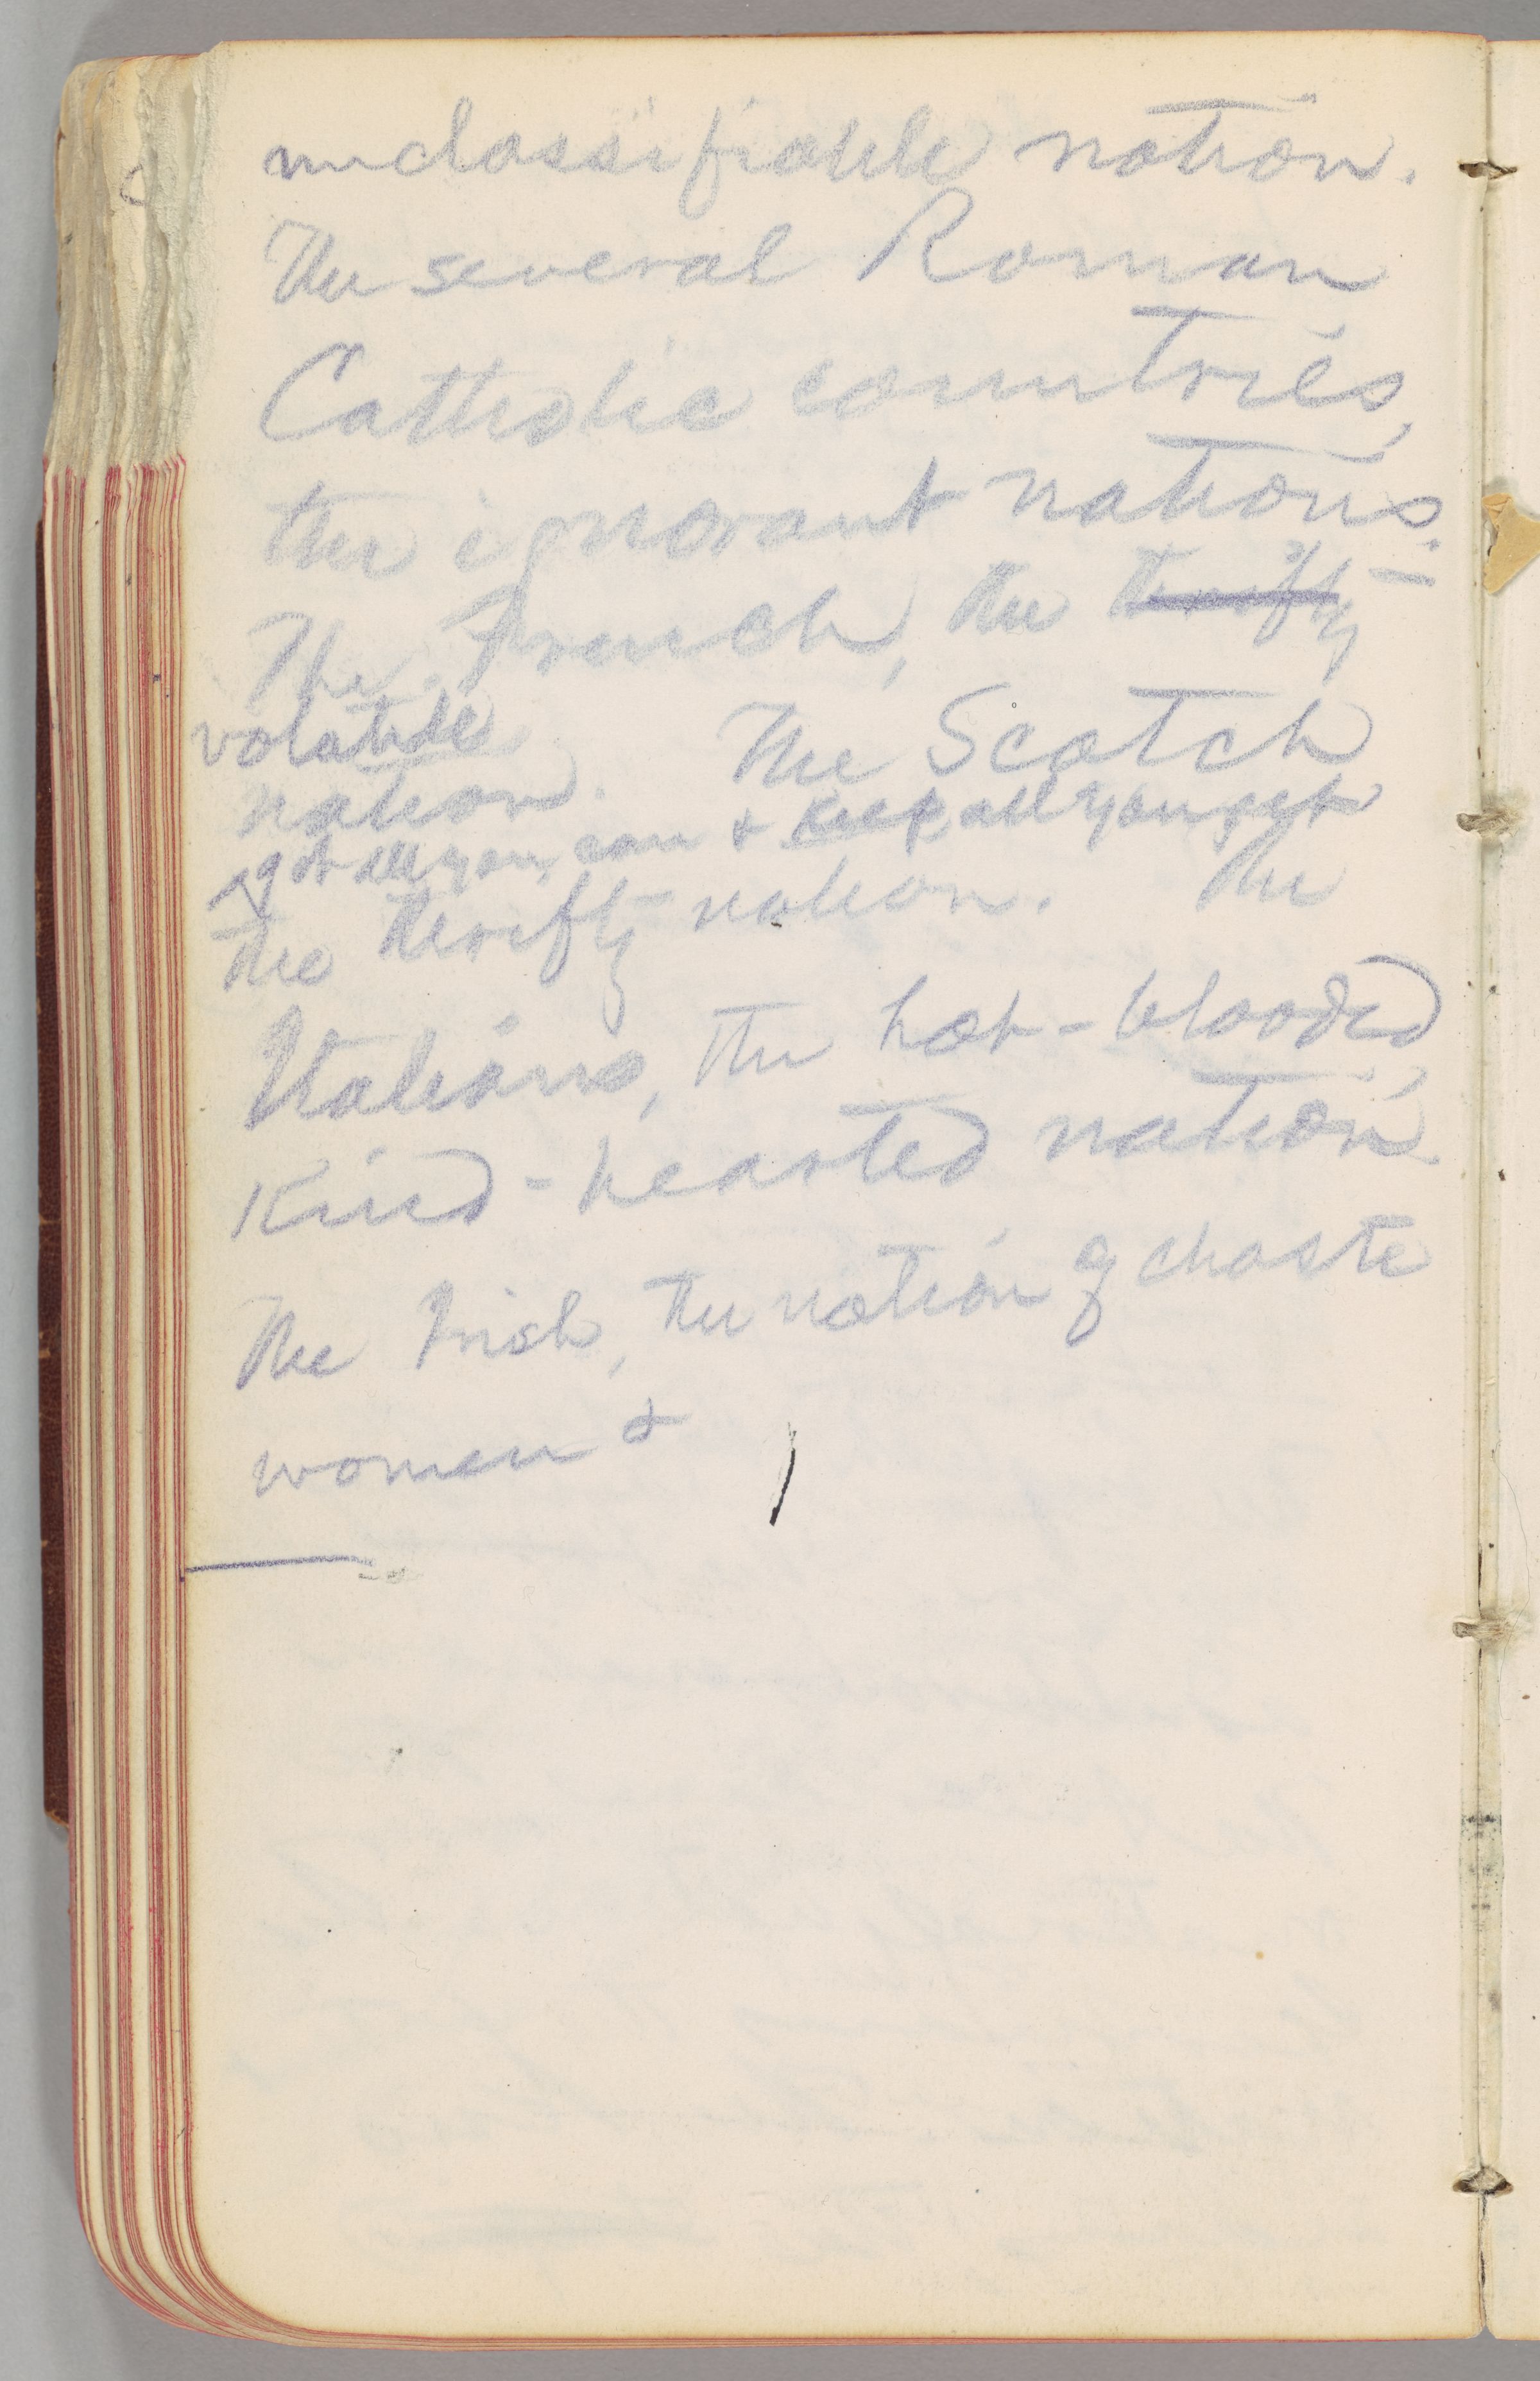 unclassifiable nation.
The several Roman
Catholic countries,
the ignorant nations.
The French, the thrifty
volatile
nation. The Scotch
get all you can & keep all you get
the thrifty nation. The
Italians, the hot-blooded,
kind-hearted nation.
The Irish, the nation of chaste
women &